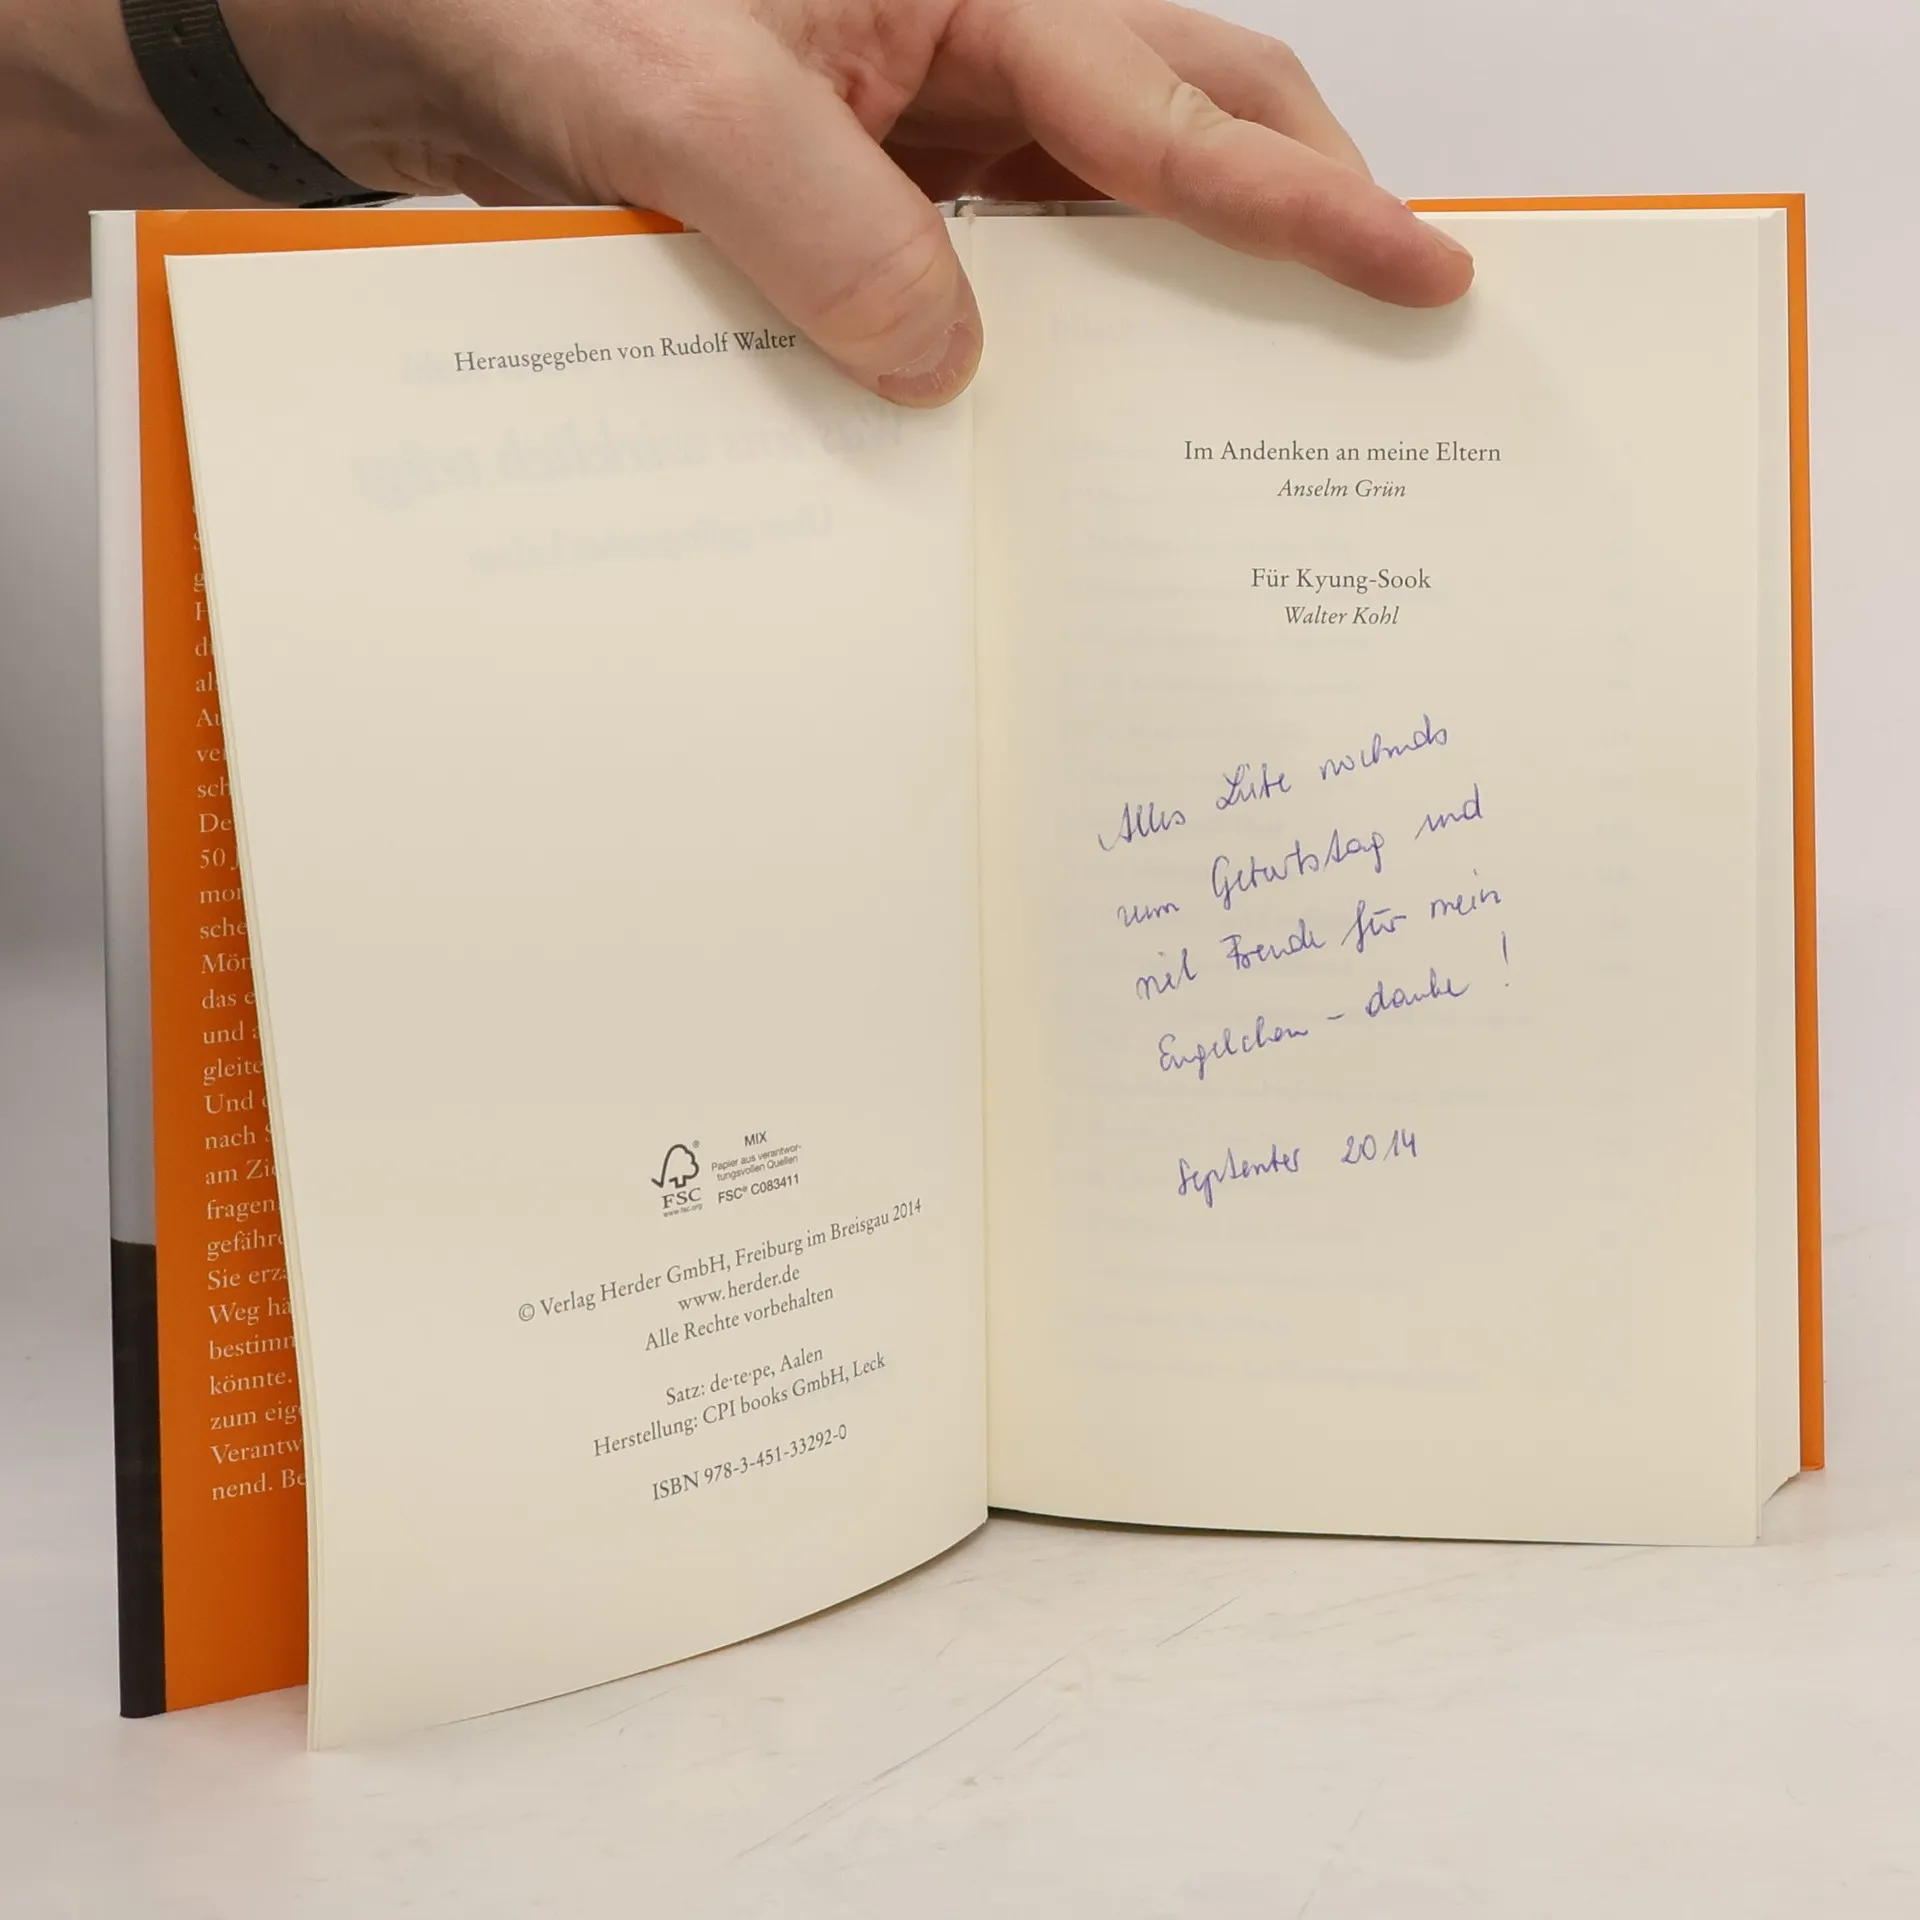 Herausgegeben von Rudolf Walter
MIX
Papier aus verantwor-
tungsvollen Quellen
FSC® C083411
FSC
www.fsc.org
© Verlag Herder GmbH, Freiburg im Breisgau 2014
www.herder.de
Alle Rechte vorbehalten
Satz: de·te·pe, Aalen
Herstellung: CPI books GmbH, Leck
ISBN 978-3-451-33292-0
Im Andenken an meine Eltern
Anselm Grün
Für Kyung-Sook
Walter Kohl
Alles Liebe nochmals
zum Geburtstag und
viel Freude für mein
Engelchen – danke !
September 2014
De
50 J
sche
das e
und a
gleite
Und
nach
am Zie
fragen
gefähr
Sie erz
Weg hä
bestimm
könnte.
zum eig
Verantw
nend. Be